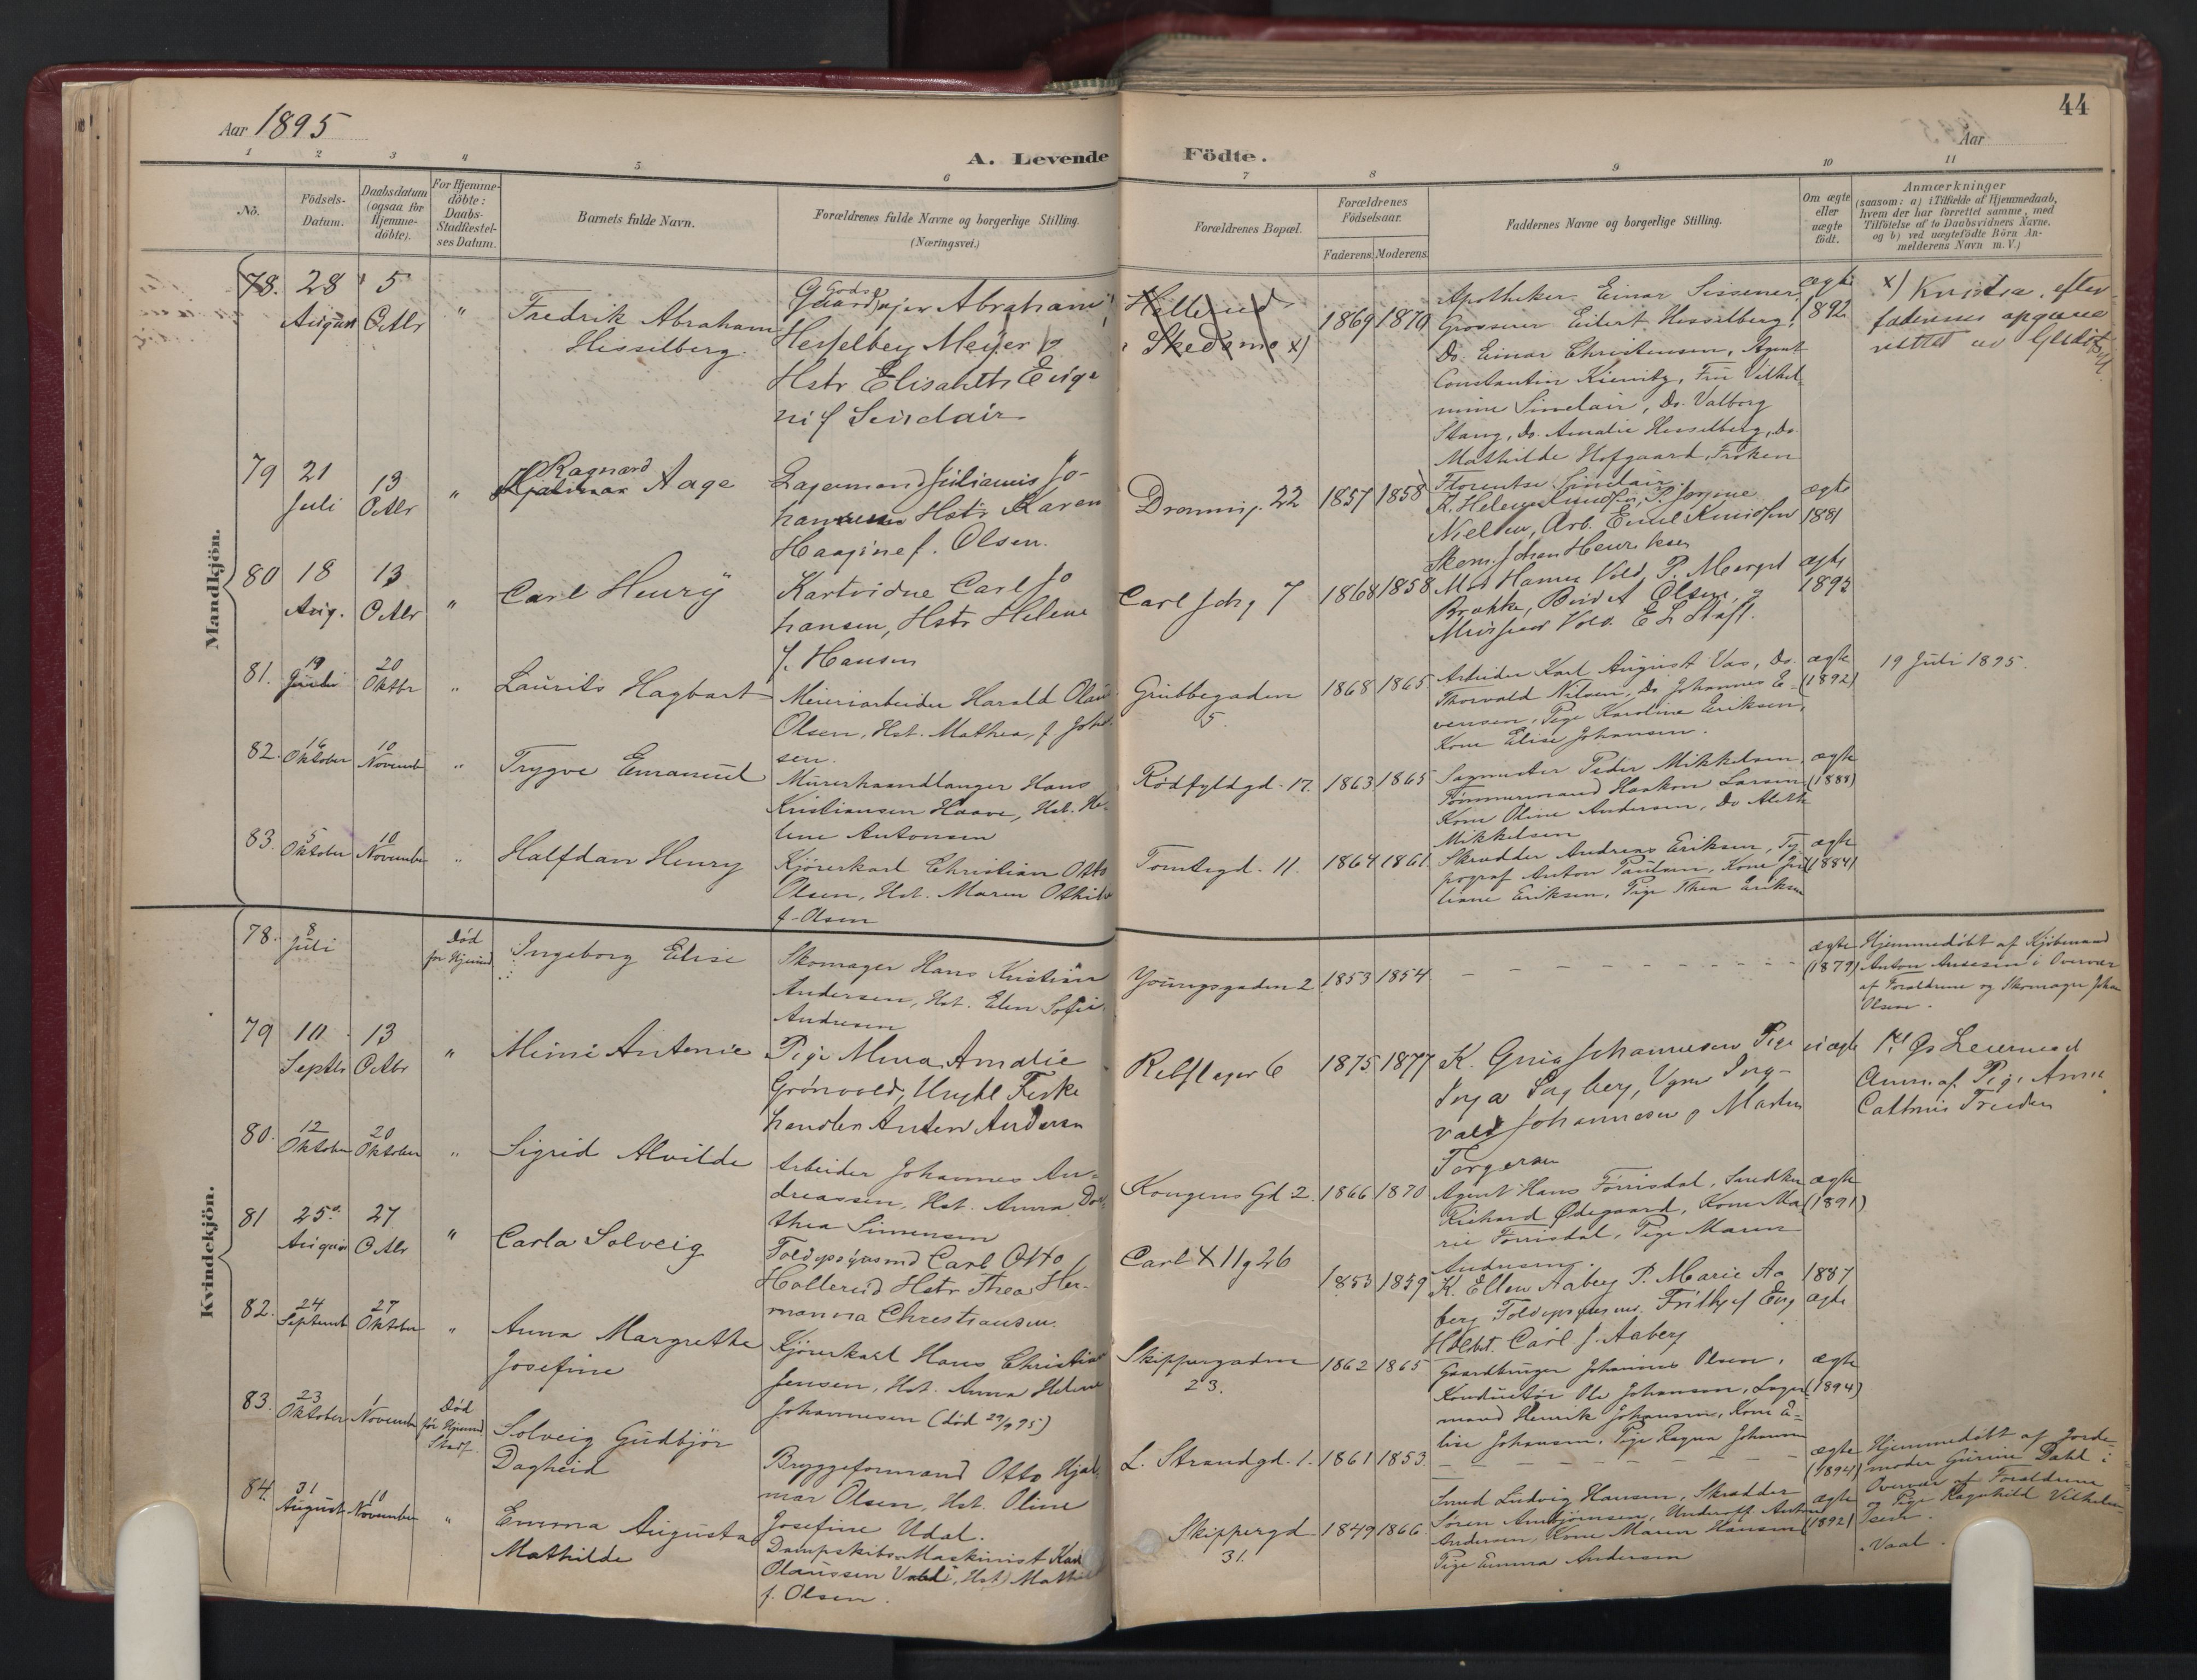 Aar 1895
44
Aar
A. Levende Födte.
1 2 3 4 5 6 7 8 9 10 11
No.
Födsels-Datum.
Daabsdatum (ogsaa for Hjemme-döbte).
For Hjemme-döbte: Daabs-Stadfæstel-ses Datum.
Barnets fulde Navn.
Forældrenes fulde Navne og borgerlige Stilling.
(Næringsvei.)
Forældrenes Bopæl.
Forældrenes Födselsaar.
Faderens Moderens
Faddernes Navne og borgerlige Stilling.
Om ægte eller uægte födt.
Anmærkninger
(saasom: a) i Tilfælde af Hjemmedaab,
hvem der har forrettet samme, med
Tilföielse af to Daabsvidners Navne.
og b) ved uægtefödte Börn An-
melderens Navn m. V.)
Mandkjön.
78. 28 August 5 Octbr "
Fredrik Abraham
Hesselberg
Godseier Abraham
Hesselberg Meyer og
Hstr Elisabeth Euge
ni f Sinclair
Hellerud
Skedsmo x)
1869 1870
Apotheker Einar Sissener,
Grosserer Eilert Hesselberg,
Do. Einar Christensen, Agent
Constantin Kierulf, Fru Vilhel
mine Sinclair, Do. Valborg
Stang, Do. Amalie Hesselberg, do.
Mathilde Hofgaard, Frøken
Florentse Sinclair
ægte
1892
x) Kristia. efter
faderens opgave
rettet av
79 21 Juli 13 Octbr "
Ragnvard
Hjalmar Aage
Lagermand Julianus Jo-
hannesen Hstr Karen
Haagine f. Olsen.
Dronning. 22
1857 1858
K. Helene Knudsen, P. Jørgine
Nielsen, Arb. Emil Knudsen
Skom. Johan Henriksen
ægte
1881
80 18 Aug. 13 Octbr "
Carl Henry
Karlvidne Carl Jo
hansen, Hstr Helene
f. Hansen
Carl Joh g 7
1868 1858
Vold P. Margit
Brakke, Olsen, og
Vold.
ægte
1893
81. 19 Juli 20 Oktbr "
Laurits Hagbart
Meieriarbeider Harald Olaus
Olsen, Hst. Mathea, f. Johan
sen.
Grubbegaden
5.
1868 1865
Arbeider Karl August Vas, Do.
Thorvald Nilsen, Do Johannes E-
vensen, Pige Karoline Eriksen,
Kone Elise Johansen.
ægte
(1892)
19 Juli 1895.
82. 16 Oktober 10 Novembr "
Trygve Emanuel
Murerhaandlanger Hans
Kristiansen Haave, Hst. He-
lene Antonsen
Rødfyldgd. 17.
1863 1865
Sagmester Peder Mikkelsen,
Tømmermand Haakon Larsen
Kone Oline Andersen, Do Alethe
Mikkelsen
ægte
(1888)
83. 5 Oktober 10 November "
Halfdan Henry
Kjörerkarl Christian Otto
Olsen, Hst. Maren Othilie
f. Olsen
Tomtegd. 11.
1864 1861
Skrædder Andreas Eriksen, Ty-
pograf Anton Paulsen, Kone Ju
liane Eriksen, Pige Thea Eriksen
ægte
(1884)
Kvindekjön.
78. 8 Juli
Død
før Hjemmed
Ingeborg Elise
Skomager Hans Kristian
Andersen, Hst. Elen Sofie
Andresen
Youngsgaden 2
1853 1854
ægte
(1879)
Hjemmedöbt af Kjöbmand
Anton Andersen i Overvær
af Forældrene og Skomager Johan
Olsen.
79 10 Septbr 13 Octbr "
Mimi Antonie
Pige Mina Amalie
Grönvold, Ungkl Fiske
handler Anton Andersen
Rebslager 6
1875 1877
K. Johannesen Pige
Inga Sagberg, Ugm Ing-
vald Johannesen og Martin
Torgersen
uægte
1ste Gs Leiermaal
Anm. af Pige Anne
Cathrine
80. 12 Oktober 20 Oktober "
Sigrid Alvilde
Arbeider Johannes An-
dreassen, Hst. Anna Do-
thea Simensen
Kongens Gd. 2.
1866 1870
Agent Hans Torrisdal, Snedker
Richard Ødegaard, Kone Ma
rie Torrisdal, Pige Maren
Andersen.
ægte
(1891)
81 25 August 27 Octbr "
Carla Solveig
Toldopsynsmd Carl Otto
Hollerud Hstr Thea Her-
manna Christiansen.
Carl XII g 26
1853 1859
K. Ellen Aaberg P. Marie Aa
berg Toldopsynsm. Frithjof Eng
Carl J. Aaberg
1887
ægte
82. 24 Septembr 27 Oktober "
Anna Margrethe
Josefine
Kjörerkarl Hans Christian
Jensen, Hst. Anna Helene
Johannesen (død 29/9 95)
Skippergaden
23.
1862 1865
Gaardbruger Johannes Olsen,
Konduktör Ole Johansen, Lager
mand Henrik Johansen, Kone E-
lise Johansen, Pige Ragna Johansen
ægte
(1894)
83. 23 Oktober 1 Novembr
Død
før Hjemmed
Stadf.
Solveig Gudbjör
Dagheid
Bryggeformand Otto Hjal
mar Olsen, Hst. Oline
Josefine Udal.
L. Strandgd. 1.
1861 1853
ægte
(1894)
Hjemmedöbt af Jorde-
moder Gurine Dahl i
Overvær af Forældrene
og Pige Ragnhild Vilhelm
84. 31 August 10 November "
Emma Augusta
Mathilde
Dampskibs-Maskinist Karl
Olaussen Vaal, Hst. Mathilde
f. Olsen.
Skippergd
31.
1849 1866
Smed Ludvig Hansen, Skrædder
Sören Arnbjörnsen, Underoff. Anton
Andersen, Kone Maren Hansen
Pige Emma Andersen
ægte
(1892)
Vaal.